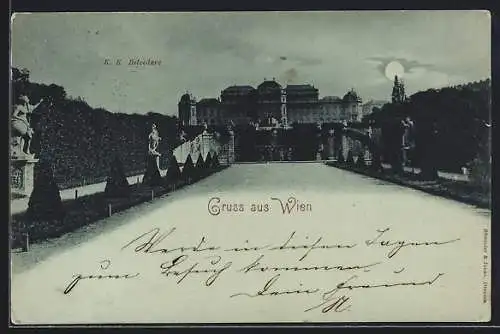 K. K. Belvedere
Gruss aus Wien
Werde in diesen Tagen
zum Besuch kommen.
Dein Freund